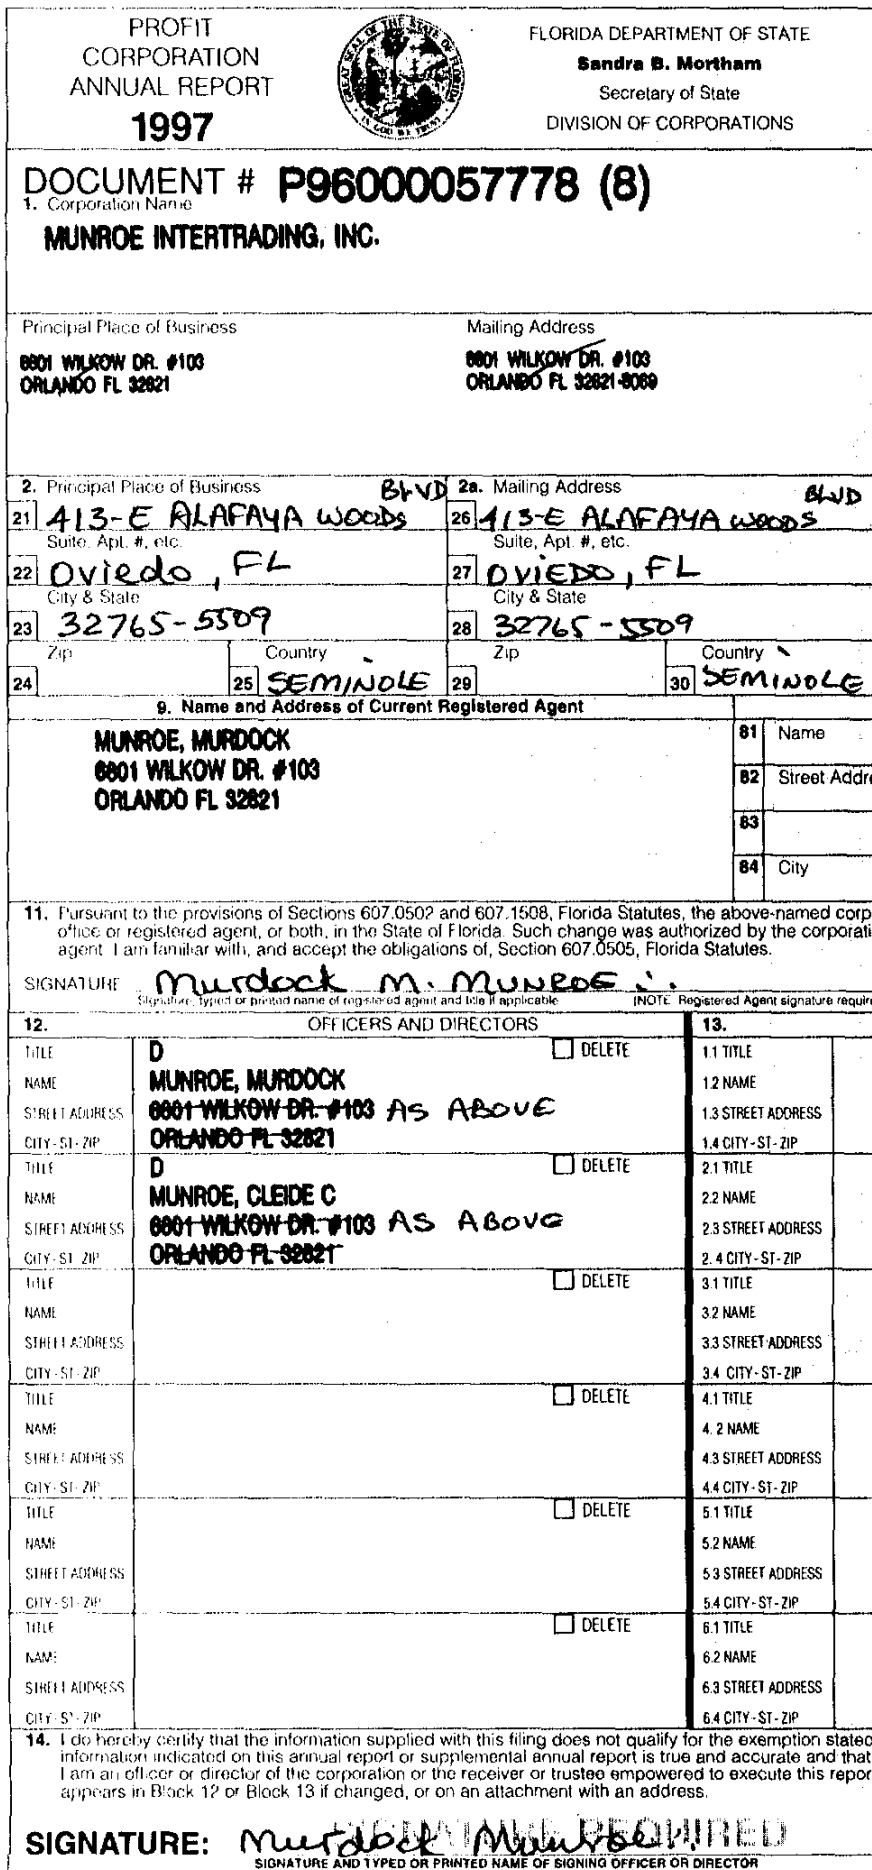 PROFIT
CORPORATION
ANNUAL REPORT
1997
GREAT SEAL OF THE STATE OF FLORIDA
IN GOD WE TRUST
FLORIDA DEPARTMENT OF STATE
Sandra B. Mortham
Secretary of State
DIVISION OF CORPORATIONS
DOCUMENT # P96000057778 (8)
1. Corporation Name
MUNROE INTERTRADING, INC.
Principal Place of Business
6801 WILKOW DR. #103
ORLANDO FL 32821
Mailing Address
6801 WILKOW DR. #103
ORLANDO FL 32821-8069
2. Principal Place of Business BLVD
21 413-E ALAFAYA WOODS
Suite, Apt. #, etc.
22 Oviedo, FL
City & State
23 32765-5509
Zip Country
24 25 SEMINOLE
2a. Mailing Address BLVD
26 413-E ALAFAYA WOODS
Suite, Apt. #, etc.
27 OVIEDO, FL
City & State
28 32765-5509
Zip Country
29 30 SEMINOLE
9. Name and Address of Current Registered Agent
MUNROE, MURDOCK
6801 WILKOW DR. #103
ORLANDO FL 32821
81 Name
82 Street Addre
83
84 City
11. Pursuant to the provisions of Sections 607.0502 and 607.1508, Florida Statutes, the above-named corp
office or registered agent, or both, in the State of Florida. Such change was authorized by the corporati
agent. I am familiar with, and accept the obligations of, Section 607.0505, Florida Statutes.
SIGNATURE Murdock M. MUNROE
Signature, typed or printed name of registered agent and title if applicable (NOTE Registered Agent signature requir
12. OFFICERS AND DIRECTORS 13.
TITLE D DELETE 1.1 TITLE
NAME MUNROE, MURDOCK 1.2 NAME
STREET ADDRESS 6801 WILKOW DR. #103 AS ABOVE 1.3 STREET ADDRESS
CITY-ST-ZIP ORLANDO FL 32821 1.4 CITY-ST-ZIP
TITLE D DELETE 2.1 TITLE
NAME MUNROE, CLEIDE C 2.2 NAME
STREET ADDRESS 6801 WILKOW DR. #103 AS ABOVE 2.3 STREET ADDRESS
CITY-ST-ZIP ORLANDO FL 32821 2.4 CITY-ST-ZIP
TITLE DELETE 3.1 TITLE
NAME 3.2 NAME
STREET ADDRESS 3.3 STREET ADDRESS
CITY-ST-ZIP 3.4 CITY-ST-ZIP
TITLE DELETE 4.1 TITLE
NAME 4.2 NAME
STREET ADDRESS 4.3 STREET ADDRESS
CITY-ST-ZIP 4.4 CITY-ST-ZIP
TITLE DELETE 5.1 TITLE
NAME 5.2 NAME
STREET ADDRESS 5.3 STREET ADDRESS
CITY-ST-ZIP 5.4 CITY-ST-ZIP
TITLE DELETE 6.1 TITLE
NAME 6.2 NAME
STREET ADDRESS 6.3 STREET ADDRESS
CITY-ST-ZIP 6.4 CITY-ST-ZIP
14. I do hereby certify that the information supplied with this filing does not qualify for the exemption stated
information indicated on this annual report or supplemental annual report is true and accurate and that
I am an officer or director of the corporation or the receiver or trustee empowered to execute this repor
appears in Block 12 or Block 13 if changed, or on an attachment with an address.
SIGNATURE REQUIRED
SIGNATURE: Murdock Munroe
SIGNATURE AND TYPED OR PRINTED NAME OF SIGNING OFFICER OR DIRECTOR